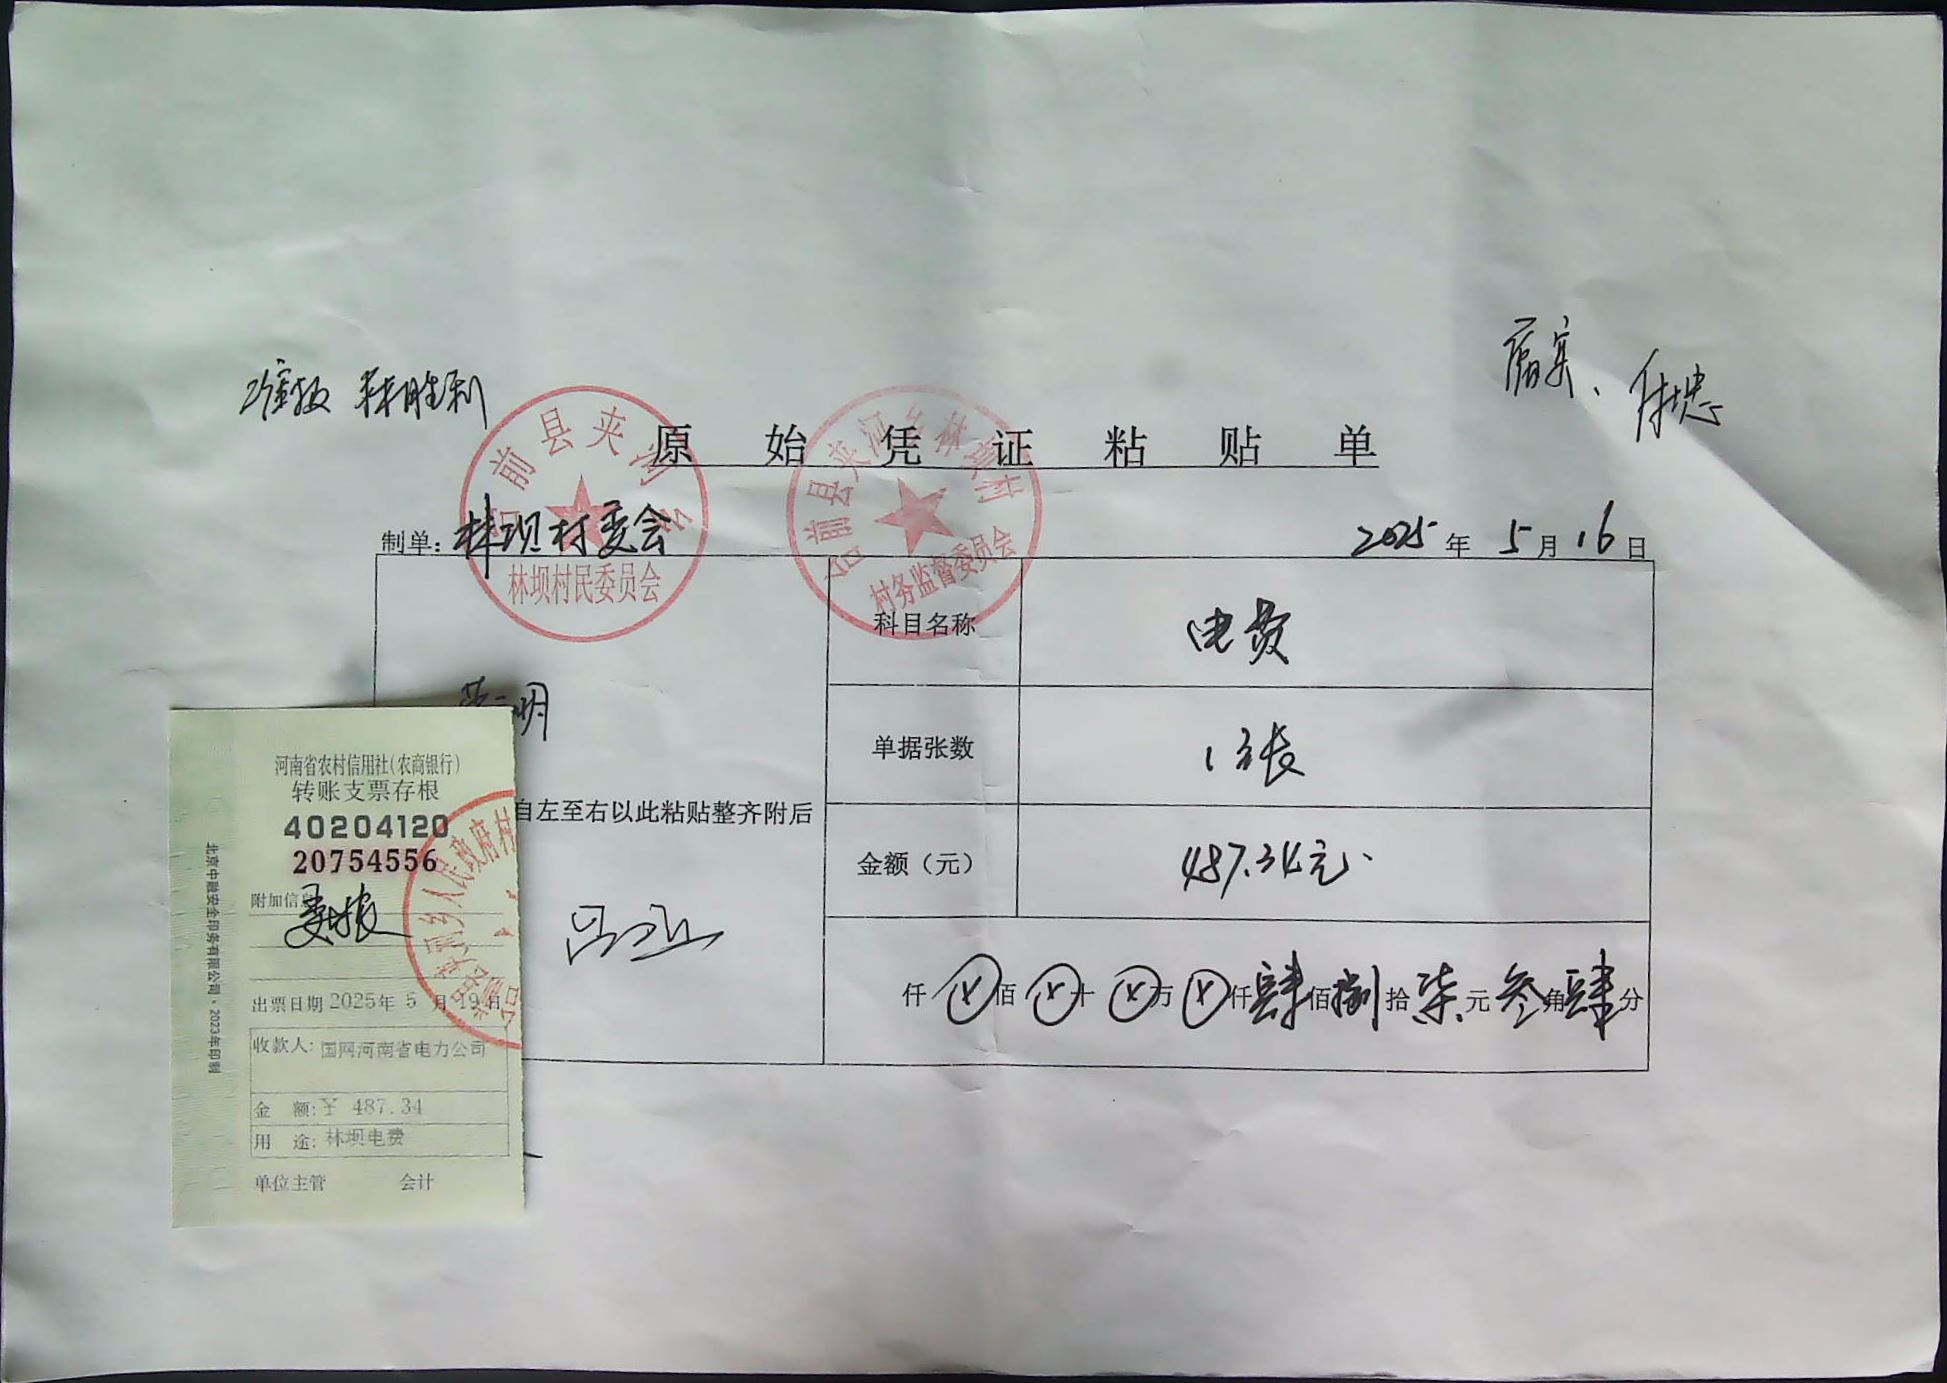 准报 林胜利
属实、
原始凭证粘贴单
制单：林坝村委会
2025年5月16日
台前县夹河乡
林坝村民委员会
台前县夹河乡林坝村
村务监督委员会
科目名称 电费
单据张数 1张
自左至右以此粘贴整齐附后
金额（元） 487.34元
仟佰十万仟肆佰捌拾柒元叁角肆分
河南省农村信用社(农商银行)
转账支票存根
40204120
20754556
附加信息
出票日期 2025年5月19日
收款人: 国网河南省电力公司
金 额: ¥ 487.34
用 途: 林坝电费
单位主管 会计
北京中融安全印务有限公司·2023年印制